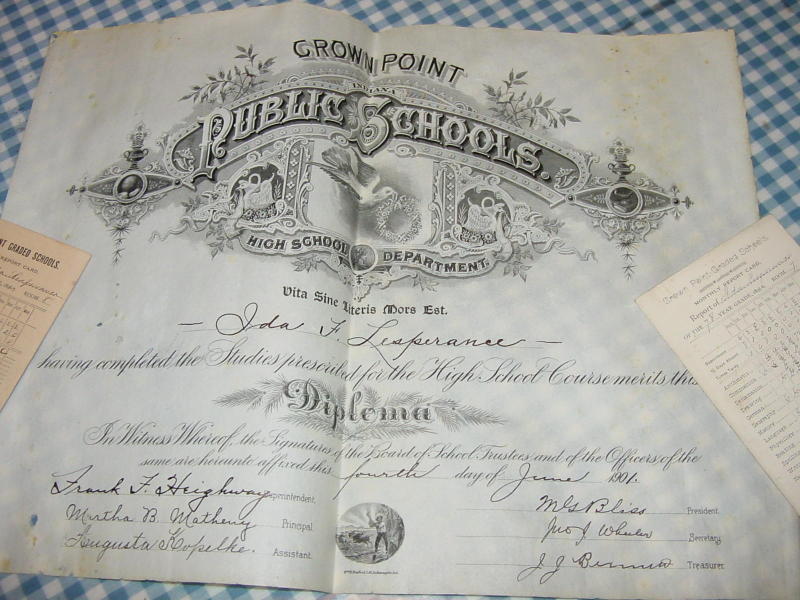 CROWN POINT
INDIANA
PUBLIC SCHOOLS.
HIGH SCHOOL DEPARTMENT.
Vita Sine Literis Mors Est.
— Ida F. Lesperance —
having completed the Studies prescribed for the High School Course merits this
Diploma
In Witness Whereof, the Signatures of the Board of School Trustees and of the Officers of the
same are hereunto affixed this fourth day of June 1901.
Frank F. Heighway Superintendent.
Martha B. Matheny Principal.
Augusta Kopelke. Assistant.
Bliss President.
Jno J. Wheeler Secretary.
J. J. Treasurer.
NT GRADED SCHOOLS.
REPORT CARD.
ROOM
Crown Point Graded Schools.
MONTHLY REPORT CARD.
Report of
OF THE 8 YEAR GRADE, ROOM
Arithmetic
Drawing
German
Grammar
History
Language
Physiology
Reading